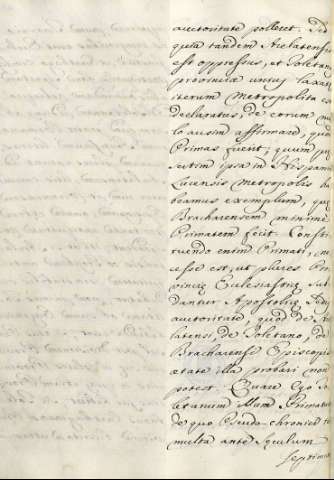 auctoritate polleret. Sed
quia tandem Arelatens
esse oppressus, et Toletan
provinciæ unius laxa
iterum Metropolita
declaratus, de eorum nu
lo ausim affirmare, quo
Primas fuerit; quum præ
sertim ipsa in Hispan
Lucensis Metropolis ha
beamus exemplum, quæ
Bracharensem minime
Primatem fecit. Consti
tuendo enim Primati, ne
cesse est, ut plures Pro
vinciæ Ecclesiasticæ sub
dantur Apostolicæ Sedis
auctoritate, quod de Are
latensi, de Toletano, de
Bracharensi Episcopis
ætate illa probari non
potest. Quare Ego
illum Primatum
de quo Pseudo-chronica
multa ante Sæculum
septimum